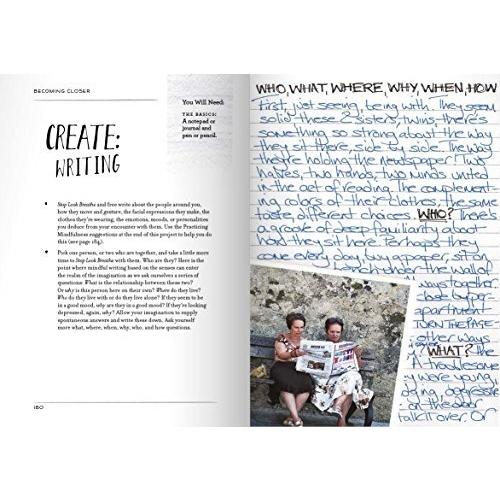 BECOMING CLOSER
You Will Need:
THE BASICS:
A notepad or
journal and
pen or pencil.
CREATE:
WRITING
Stop Look Breathe and free write about the people around you,
how they move and gesture, the facial expressions they make, the
clothes they're wearing, the emotions, moods, or personalities
you deduce from your encounter with them. Use the Practicing
Mindfulness suggestions at the end of this project to help you do
this (see page 184).
Pick one person, or two who are together, and take a little more
time to Stop Look Breathe with them. Who are they? Here is the
point where mindful writing based on the senses can enter
the realm of the imagination as we ask ourselves a series of
questions: What is the relationship between these two?
Or why is this person here on their own? Where do they live?
Who do they live with or do they live alone? If they seem to be
in a good mood, why are they in a good mood? If they're looking
depressed, again, why? Allow your imagination to supply
spontaneous answers and write these down. Ask yourself
more what, where, when, why, who, and how questions.
160
WHO, WHAT, WHERE, WHY, WHEN, HOW
First, just seeing, being with. They seem
solid these 2 sisters, twins, there's
something so strong about the way
they sit there, side by side. The way
they're holding the newspaper. Two
halves, two hands, two minds united
in the act of reading. The complement-
ing colors of their clothes, the same
taste, different choices. WHO? There's
a grade of deep familiarity about
how they sit here. Perhaps they
come every day, buy a paper, stroll
over the wall of
ways together
close by
apartment
TURN THE PAGE
other ways
WHAT? The
A troublesome
y were young,
being, aggressive
on the door
talk it over. Or